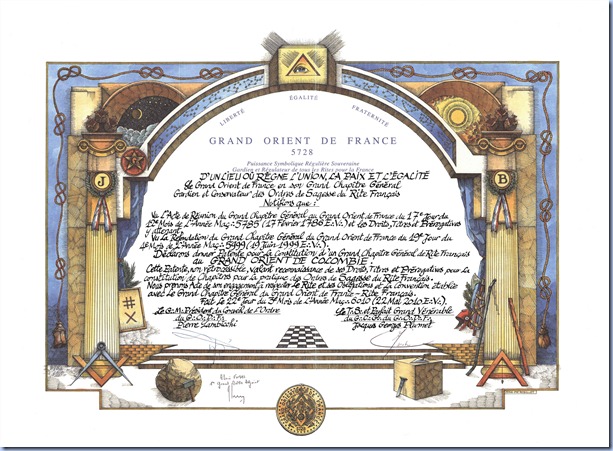 LIBERTÉ
ÉGALITÉ
FRATERNITÉ
GRAND ORIENT DE FRANCE
5728
Puissance Symbolique Régulière Souveraine
Gardien et Régulateur de tous les Rites pour la France
D'UN LIEU OÙ RÈGNE L'UNION, LA PAIX ET L'ÉGALITÉ
Le Grand Orient de France en son Grand Chapitre Général
Gardien et Conservateur des Ordres de Sagesse du Rite Français
Notifions que :
Vu l'Acte de Réunion du Grand Chapitre Général au Grand Orient de France du 17e Jour du
12e Mois de l'Année Maç∴ 5785 (17 Février 1786 E∴V∴) et les Droits, Titres et Prérogatives
y attenant,
Vu la Refondation du Grand Chapitre Général du Grand Orient de France du 19e Jour du
Mois de l'Année Maç∴ 5999 (19 Juin 1999 E∴V∴)
Déclarons donner Patente pour la Constitution d'un Grand Chapitre Général de Rite Français
au GRAND ORIENT DE COLOMBIE.
Cette Patente, non rétrocessible, valant reconnaissance de ses Droits, Titres et Prérogatives pour la
constitution de Chapitres pour la pratique des Ordres de Sagesse du Rite Français.
Nous prenons Acte de son engagement à respecter le Rite et ses Obligations et la Convention établie
avec le Grand Chapitre Général du Grand Orient de France - Rite Français.
Fait le 22e Jour du 3e Mois de l'Année Maç∴ 6010 (22 Mai 2010 E∴V∴)
Le G∴M∴ Président du Conseil de l'Ordre
du G∴O∴D∴F∴
Pierre Lambicchi
Le T∴S∴ et Parfait Grand Vénérable
du G∴C∴G∴ du G∴O∴D∴F∴
Jacques Georges Plumet
J
B